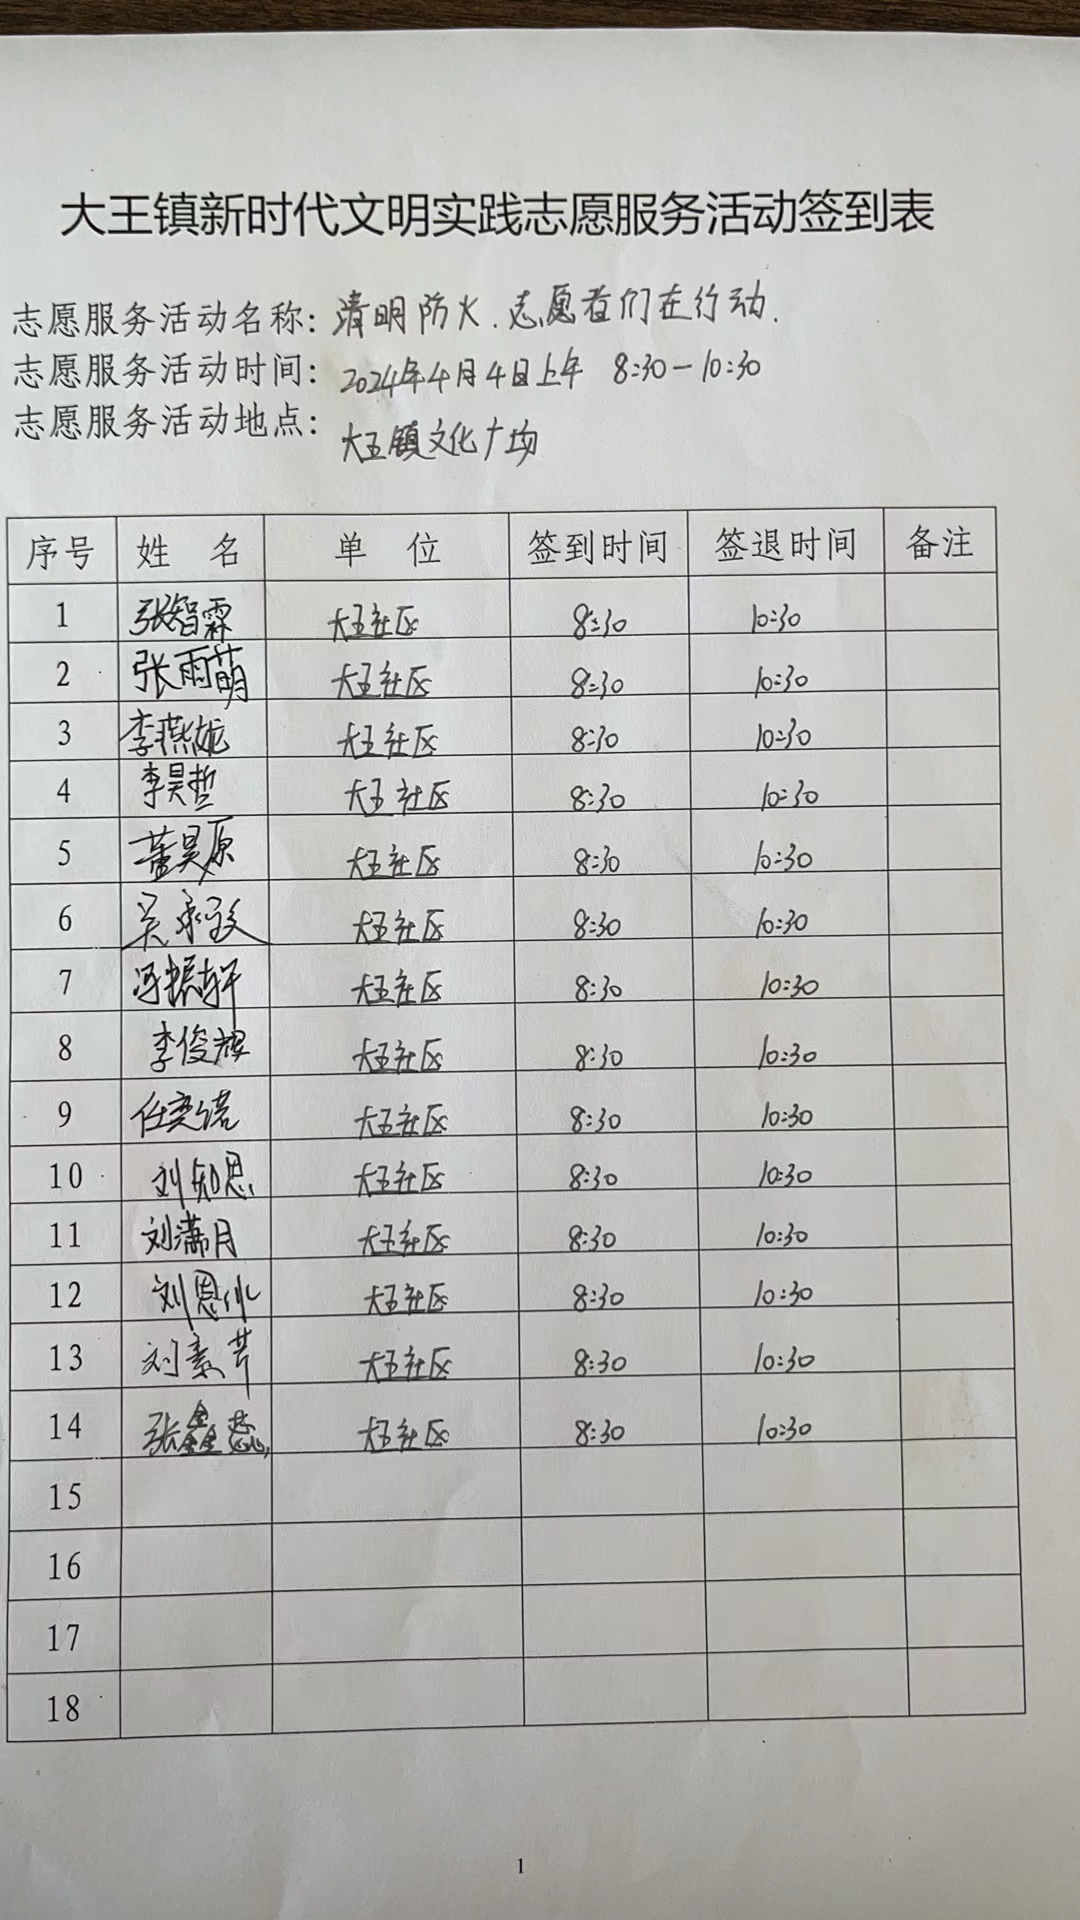 大王镇新时代文明实践志愿服务活动签到表
志愿服务活动名称：清明防火、志愿者们在行动.
志愿服务活动时间：2024年4月4日上午 8:30-10:30
志愿服务活动地点：大王镇文化广场
序号 姓 名 单 位 签到时间 签退时间 备注
1 张智霖 大王社区 8:30 10:30
2 张雨萌 大王社区 8:30 10:30
3 李燕妮 大王社区 8:30 10:30
4 李昊哲 大王社区 8:30 10:30
5 董昊原 大王社区 8:30 10:30
6 大王社区 8:30 10:30
7 冯振轩 大王社区 8:30 10:30
8 李俊辉 大王社区 8:30 10:30
9 任奕诺 大王社区 8:30 10:30
10 刘知恩 大王社区 8:30 10:30
11 刘满月 大王社区 8:30 10:30
12 大王社区 8:30 10:30
13 刘素芹 大王社区 8:30 10:30
14 张鑫蕊 大王社区 8:30 10:30
15
16
17
18
1